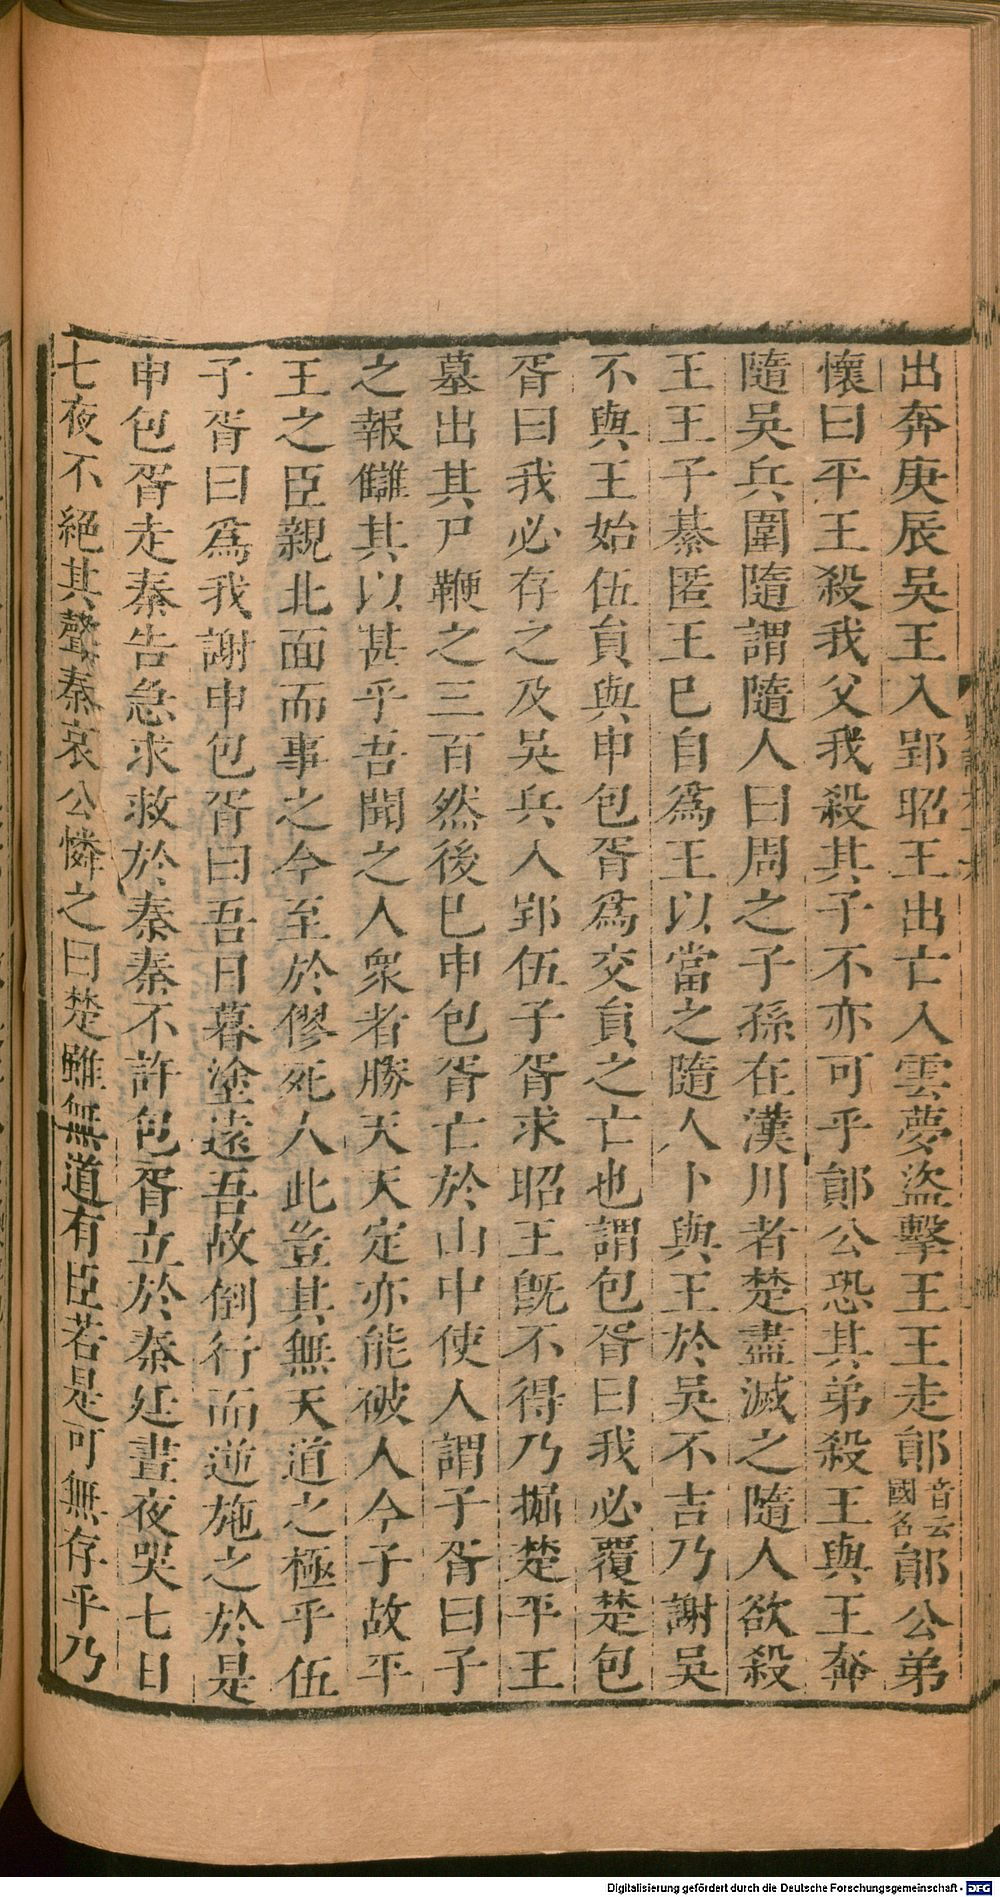 出奔庚辰吳王入郢昭王出亡入雲夢盜擊王王走鄖音云國名鄖公弟
懷曰平王殺我父我殺其子不亦可乎鄖公恐其弟殺王與王奔
隨吳兵圍隨謂隨人曰周之子孫在漢川者楚盡滅之隨人欲殺
王王子綦匿王已自爲王以當之隨人卜與王於吳不吉乃謝吳
不與王始伍員與申包胥爲交員之亡也謂包胥曰我必覆楚包
胥曰我必存之及吳兵入郢伍子胥求昭王旣不得乃掘楚平王
墓出其尸鞭之三百然後已申包胥亡於山中使人謂子胥曰子
之報讎其以甚乎吾聞之人衆者勝天天定亦能破人今子故平
王之臣親北面而事之今至於僇死人此豈其無天道之極乎伍
子胥曰爲我謝申包胥曰吾日暮塗遠吾故倒行而逆施之於是
申包胥走秦告急求救於秦秦不許包胥立於秦廷晝夜哭七日
七夜不絕其聲秦哀公憐之曰楚雖無道有臣若是可無存乎乃
Digitalisierung gefördert durch die Deutsche Forschungsgemeinschaft - DFG